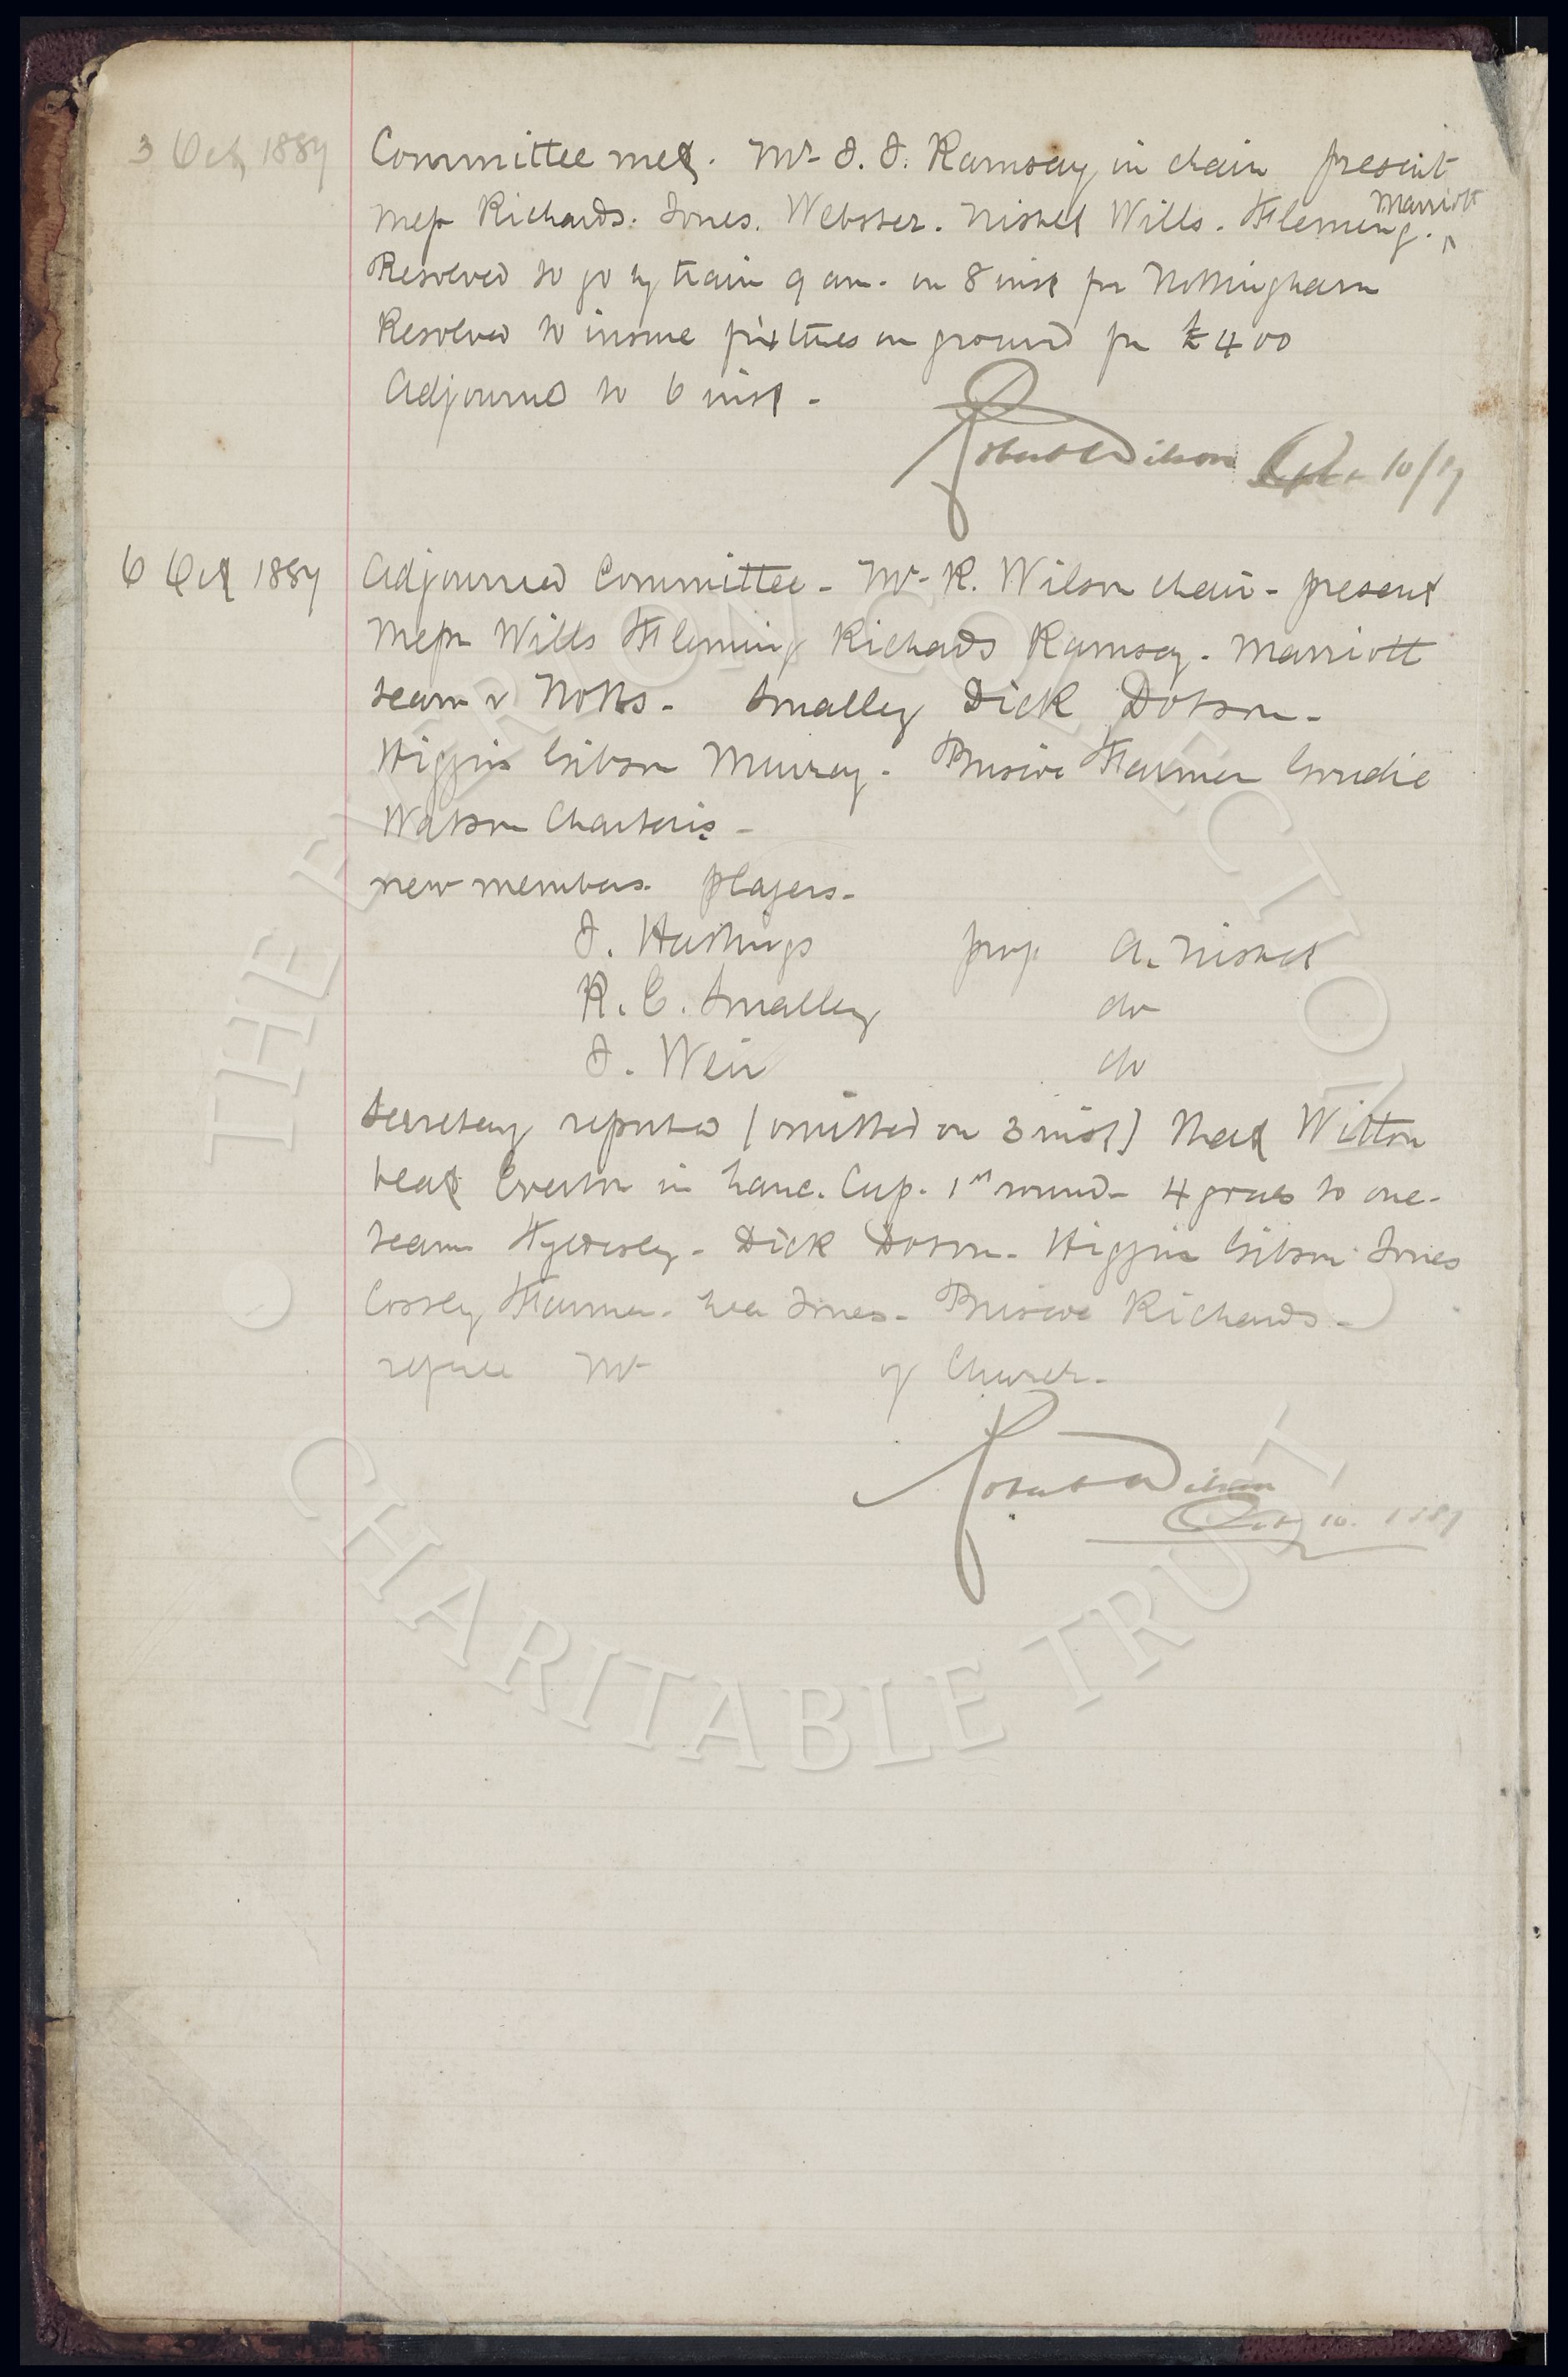 3 Oct 1887 Committee met. Mr J. J. Ramsay in chair present
Messrs Richards. Jones. Webster. Nisbet Wills. Fleming. Marriott
Resolved to go by train 9 am. on 8 inst for Nottingham
Resolved to insure fixtures on ground for £400
Adjourned to 6 inst -
Robert Wilson 10/87
6 Oct 1887 Adjourned Committee - Mr R. Wilson chair - present
Messrs Wills Fleming Richards Ramsay - Marriott
team v Notts - Smalley Dick Dobson -
Higgins Gibson Murray - Briscoe Farmer Goudie
Watson Charteris -
new members players -
J. Hastings prop A. Nisbet
R. E. Smalley do
J. Weir do
Secretary reported (omitted on 3 inst) that Witton
beat Everton in Lanc. Cup. 1st round - 4 goals to one -
team Smalley - Dick Dobson - Higgins Gibson Jones
Farmer - Jones - Briscoe Richards -
referee Mr of Church -
Robert Wilson
Oct 10. 1887
THE EVERTON COLLECTION
CHARITABLE TRUST
©